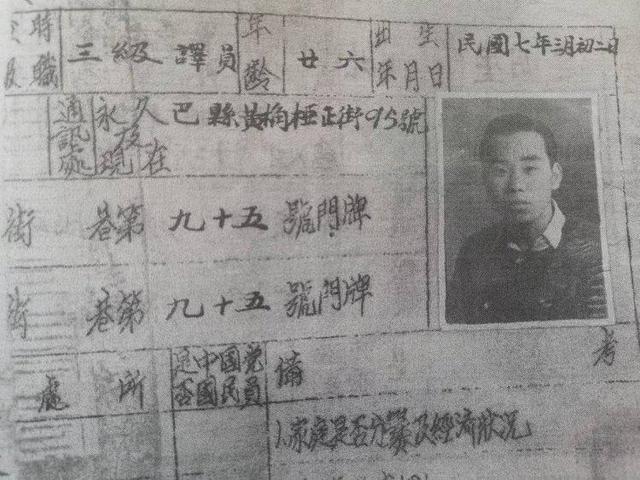 時職 三級譯員 年齡 廿六 出生年月日 民國七年三月初二日
通訊處 永久及現在 巴縣黃桷椏正街95號
街 巷第 九十五 號門牌
街 巷第 九十五 號門牌
處 所 是否中國國民党員 備 考
1.家庭是否分爨及經濟狀況